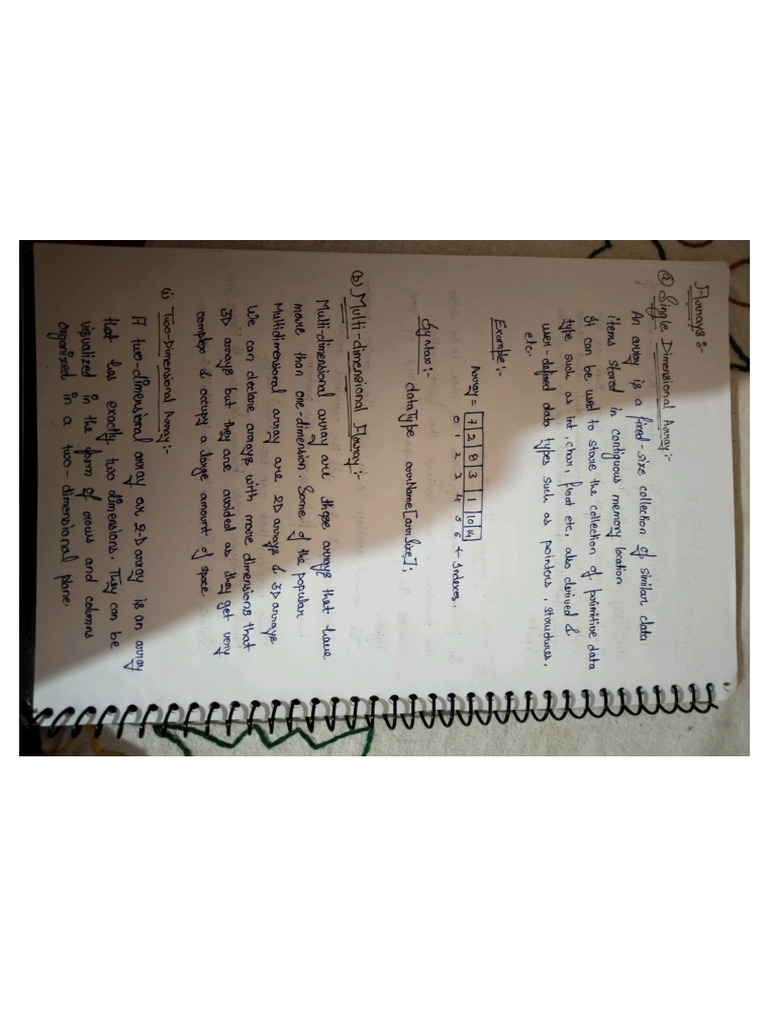 Arrays :-
(a) Single Dimensional Array :-
An array is a fixed-size collection of similar data
items stored in contiguous memory location
It can be used to store the collection of primitive data
type such as int, char, float etc, also derived &
user-defined data types such as pointers, structures,
etc.
Example :-
Array = 7 2 8 3 1 10 14
0 1 2 3 4 5 6 ← Indexes.
Syntax :- dataType arrName[arrSize];
(b) Multi-dimensional Array :-
Multi-dimensional array are those arrays that have
more than one-dimension. Some of the popular
Multidimensional array are 2D arrays & 3D arrays.
We can declare arrays with more dimensions that
3D arrays but they are avoided as they get very
complex & occupy a large amount of space.
(i) Two-Dimensional Array :-
A two-dimensional array or 2-D array is an array
that has exactly two dimensions. They can be
visualized in the form of rows and columns
organized in a two-dimensional plane.